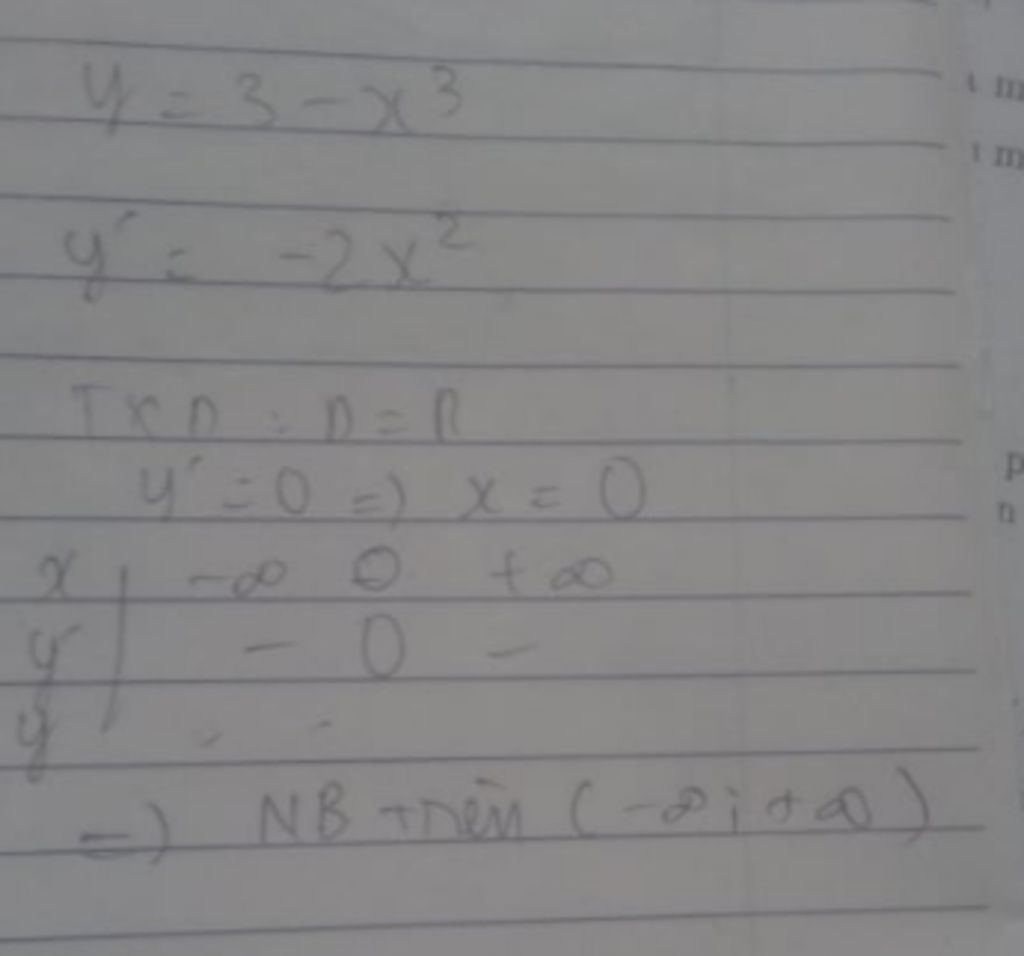 y = 3 - x³
y' = -2x²
TXD : D = R
y' = 0 => x = 0
x | -∞ 0 +∞
y' | - 0 -
y
=> NB trên (-∞; +∞)
m
m
p
n